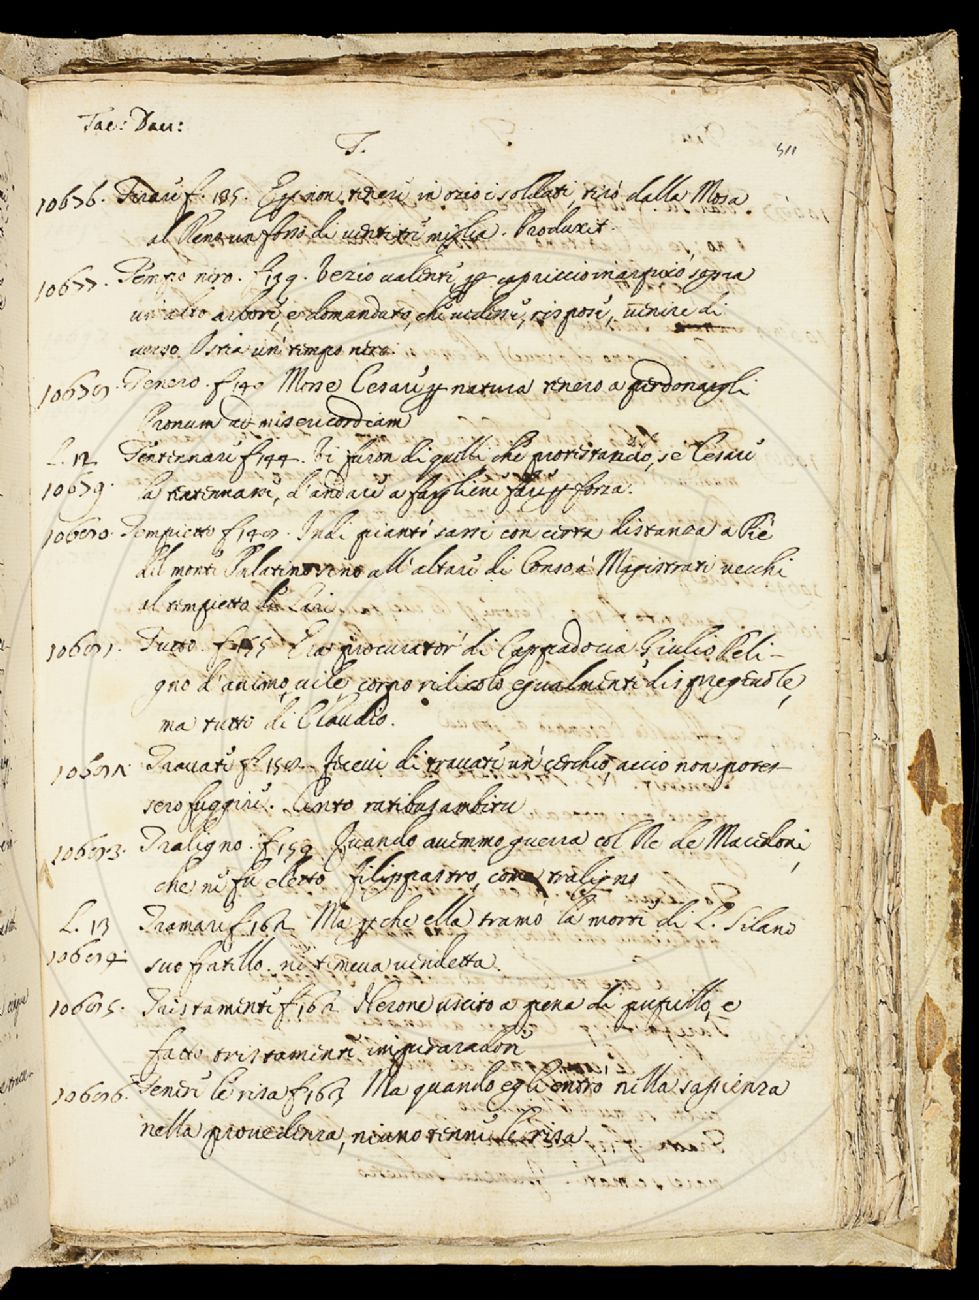 Tac: Dau:
T.
511
10676. Tirare f. 185. Egli non tenere in ozio i soldati, tirò dalla Mosa
al Reno un fosso di ventitre miglia. Produxit
10677. Tempo nero. f. 139. Vezio Valente per capriccio inarpicò sopra
un alto arbore, e domandato, che vedesse, rispose, venire di
verso Ostia un tempo nero.
Tenero. f. 140 Mosse Cesare per natura tenero a perdonargli
Pronum ad misericordiam
L. 12 Tentennare f. 144. Vi furon di quelli che protestando, se Cesare
10679. la tentennava, d'andare a fargliene fare per forza.
10680. Tempietto f. 149. Indi piantò sassi con certa distanza a Piè
del monte Palatino sino all'altare di Conso a Magistrati vecchi
al tempietto de Lari
10681. Tutto. f. 155 Era procurator di Cappadocia Giulio Peli-
gno d'animo vile, corpo ridicolo egualmente dispregevole,
ma tutto di Claudio.
Travate f. 158. Fecevi di travate un cerchio, accio non potes
sero fuggire. Cincto ratibus ambitu
10683. Traligno. f. 159 Quando avemmo guerra col Re de Macedoni,
che ne fu eletto filippastro, come traligno
L. 13 Tramare f. 162 Ma perche ella tramò la morte di L. Silano
10684. suo fratello. ne temeva vendetta.
10685. Tristamente f. 162 Nerone uscito a pena di pupillo, e
fatto tristamente imperadore
10686. Tenere le risa f. 163 Ma quando egli entrò nella sapienza
nella provedenza, niuno tenne le risa.